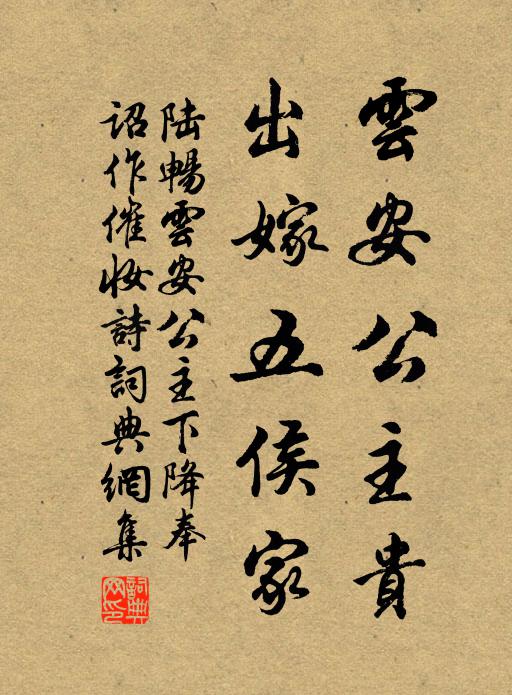 雲安公主貴
出嫁五侯家
陆暢雲安公主下降奉
詔作催妝詩詞典網集
詞典网印